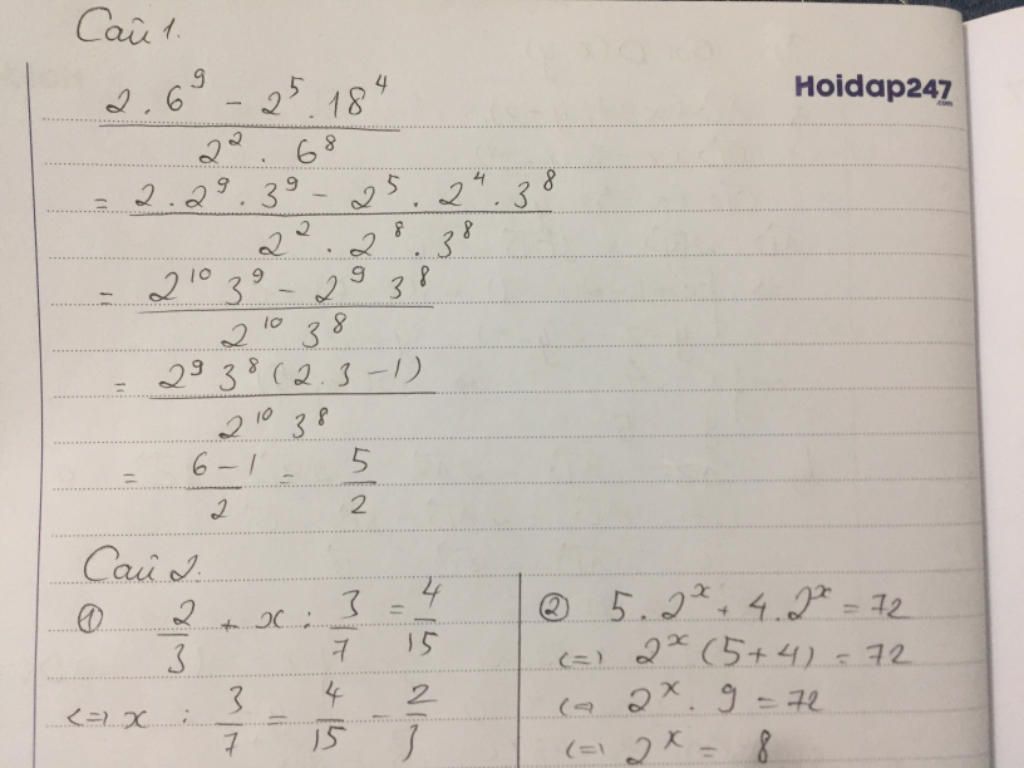 Câu 1.
Hoidap247
.com
2 . 6⁹ - 2⁵ . 18⁴
2² . 6⁸
= 2 . 2⁹ . 3⁹ - 2⁵ . 2⁴ . 3⁸
2² . 2⁸ . 3⁸
= 2¹⁰ 3⁹ - 2⁹ 3⁸
2¹⁰ 3⁸
= 2⁹ 3⁸ (2.3 - 1)
2¹⁰ 3⁸
= 6 - 1 / 2 = 5 / 2
Câu 2.
① 2/3 + x : 3/7 = 4/15
<=> x : 3/7 = 4/15 - 2/3
② 5 . 2ˣ + 4 . 2ˣ = 72
<=> 2ˣ (5 + 4) = 72
<=> 2ˣ . 9 = 72
<=> 2ˣ = 8